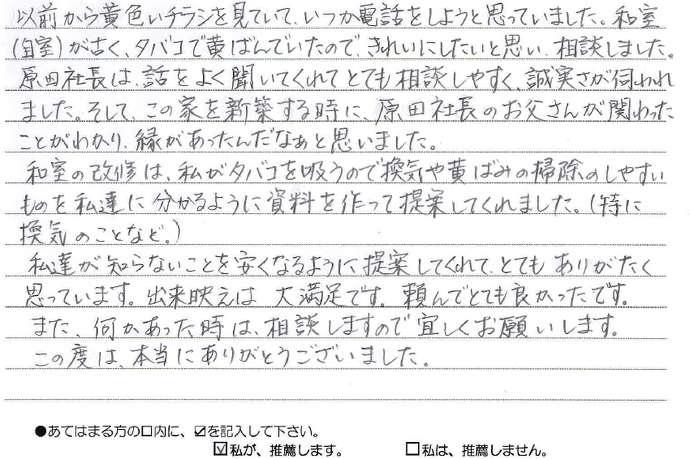 以前から黄色いチラシを見ていて、いつか電話をしようと思っていました。和室
(自室)が古く、タバコで黄ばんでいたので、きれいにしたいと思い、相談しました。
原田社長は、話をよく聞いてくれてとても相談しやすく、誠実さが伺われ
ました。そして、この家を新築する時に、原田社長のお父さんが関わった
ことがわかり、縁があったんだなぁと思いました。
和室の改修は、私がタバコを吸うので換気や黄ばみの掃除のしやすい
ものを私達に分かるように資料を作って提案してくれました。(特に
換気のことなど。)
私達が知らないことを安くなるように提案してくれて、とてもありがたく
思っています。出来映えは大満足です。頼んでとても良かったです。
また、何かあった時は、相談しますので宜しくお願いします。
この度は、本当にありがとうございました。
●あてはまる方の口内に、☑を記入して下さい。
☑私が、推薦します。 □私は、推薦しません。